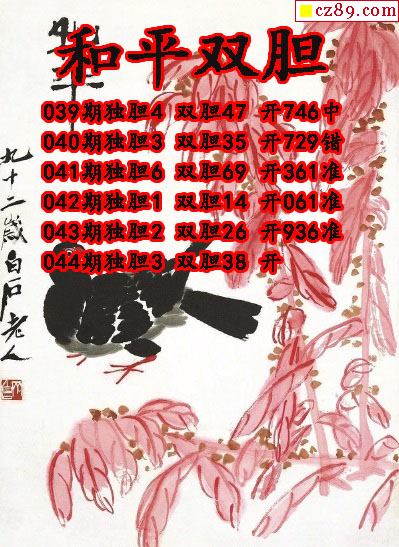 cz89.com
和平双胆
039期独胆4 双胆47 开746中
040期独胆3 双胆35 开729错
041期独胆6 双胆69 开361准
042期独胆1 双胆14 开061准
043期独胆2 双胆26 开936准
044期独胆3 双胆38 开
九十二岁白石老人